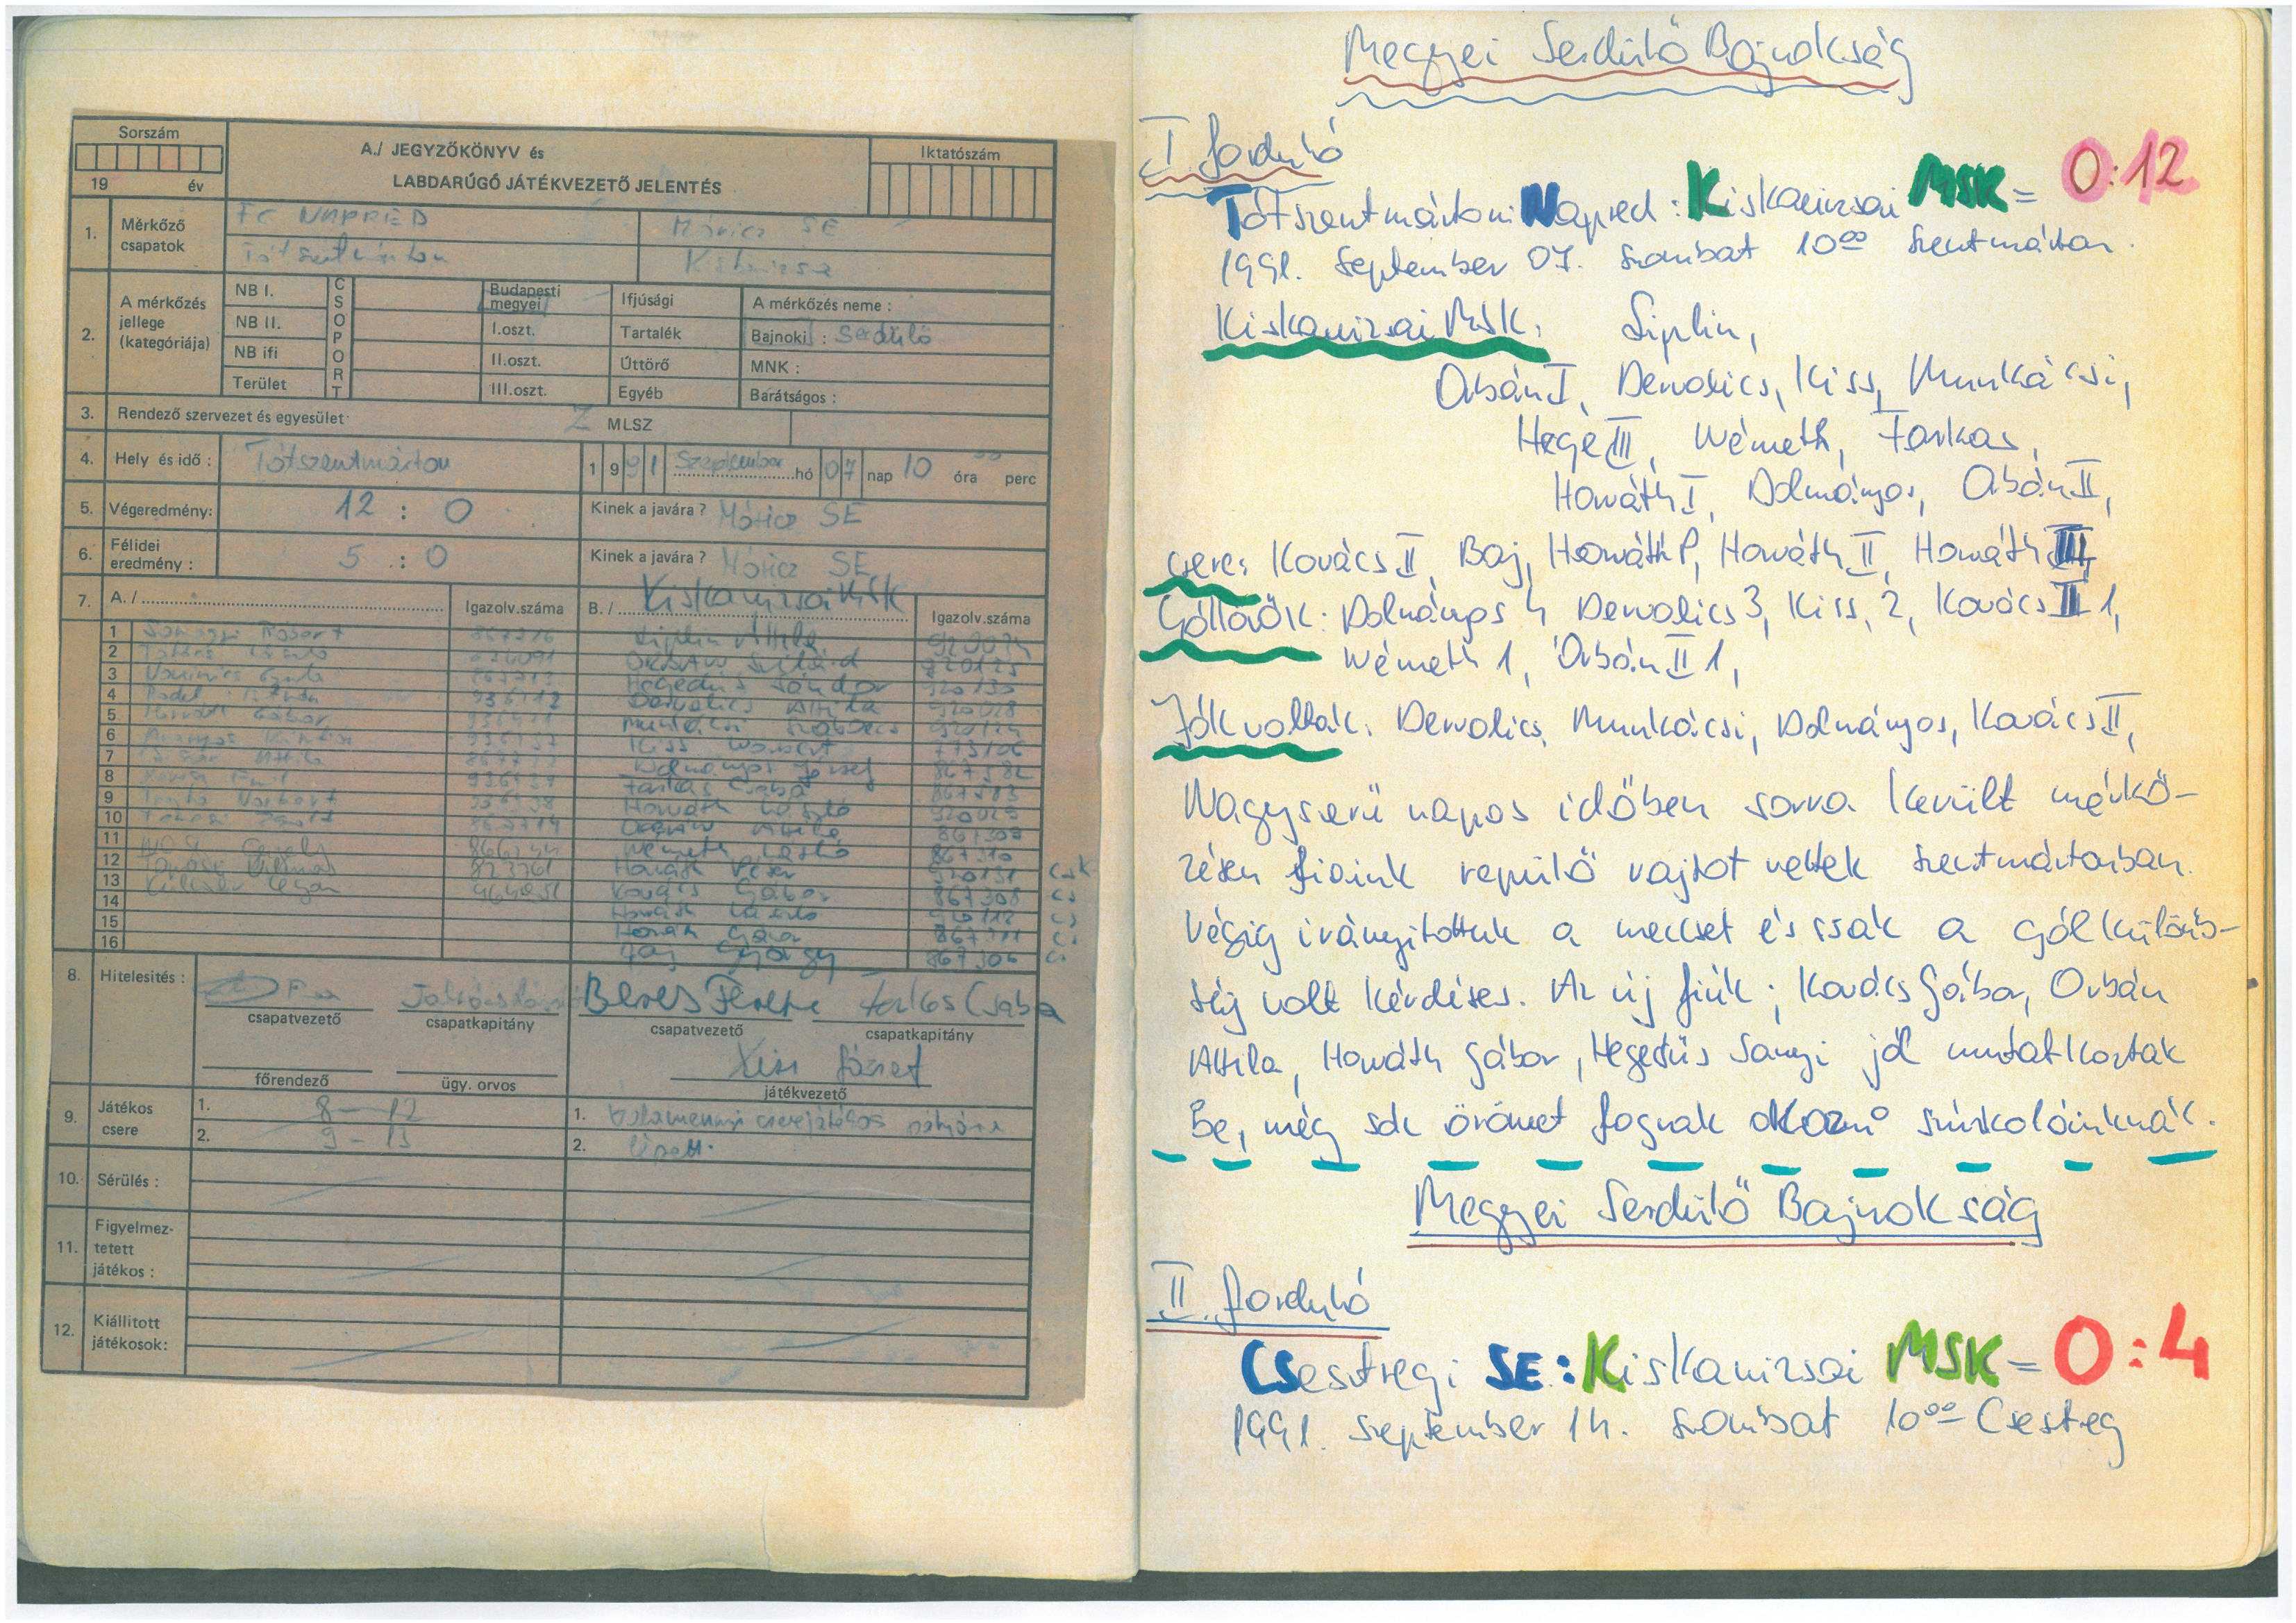 Sorszám
19 év
A./ JEGYZŐKÖNYV és
LABDARÚGÓ JÁTÉKVEZETŐ JELENTÉS
Iktatószám
1. Mérkőző csapatok
FC NAPRED Móricz SE
Tótszentmárton Kiskanizsa
2. A mérkőzés jellege (kategóriája)
NB I. CSOPORT Budapesti megyei Ifjúsági A mérkőzés neme :
NB II. I.oszt. Tartalék Bajnoki : Serdülő
NB ifi II.oszt. Úttörő MNK :
Terület III.oszt. Egyéb Barátságos :
3. Rendező szervezet és egyesület: Z MLSZ
4. Hely és idő : Tótszentmárton 1991 Szeptember hó 07 nap 10 óra 00 perc
5. Végeredmény: 12 : 0 Kinek a javára ? Móricz SE
6. Félidei eredmény : 5 : 0 Kinek a javára ? Móricz SE
7. A./ Igazolv.száma B./ Kiskanizsai MSK Igazolv.száma
1 Siplin Attila
2
3 Hegedűs Sándor
4 Dervalics Attila
5 Munkácsi Szabolcs
6 Kiss
7 Dolmányos József
8 Farkas Csaba
9 Horváth László
10 Orbán Attila
11 Németh László
12 Horváth Péter
13 Kovács Gábor 867308 cs
14 Horváth László
15 Horváth Gábor
16 Baj György 867306
8. Hitelesités :
Beres Ferenc Farkas Csaba
csapatvezető csapatkapitány csapatvezető csapatkapitány
Kiss József
főrendező ügy. orvos játékvezető
9. Játékos csere
1. 8 - 12 1. Valamennyi cserejátékos pályára
2. 9 - 13 2. lépett.
10. Sérülés :
11. Figyelmez-
tetett
játékos :
12. Kiállitott
játékosok:
Megyei Serdülő Bajnokság
I forduló
Tótszentmártoni Napred : Kiskanizsai MSK = 0:12
1991. September 07. szombat 10 00 Szentmárton.
Kiskanizsai MSK: Siplin,
Orbán I, Dervalics, Kiss, Munkácsi,
Hege III, Németh, Farkas,
Horváth I, Dolmányos, Orbán II,
csere: Kovács II, Baj, Horváth P, Horváth II, Horváth III,
Góllövők: Dolmányos 4 Dervalics 3, Kiss, 2, Kovács II 1,
Németh 1, Orbán II 1,
Jók voltak: Dervalics, Munkácsi, Dolmányos, Kovács II,
Nagyszerű napos időben sorra került mérkő-
zésen fiaink repülő rajtot vettek szentmártonban.
Végig irányitottuk a meccset és csak a gólkülönb-
ség volt kérdéses. Az új fiúk; Kovács Gábor, Orbán
Attila, Horváth Gábor, Hegedűs Sanyi jól mutatkoztak
Be, még sok örömet fognak okozni szurkolóinknak.
Megyei Serdülő Bajnokság
II. forduló
Csestregi SE : Kiskanizsai MSK = 0:4
1991. szeptember 14. szombat 10 00 Csestreg